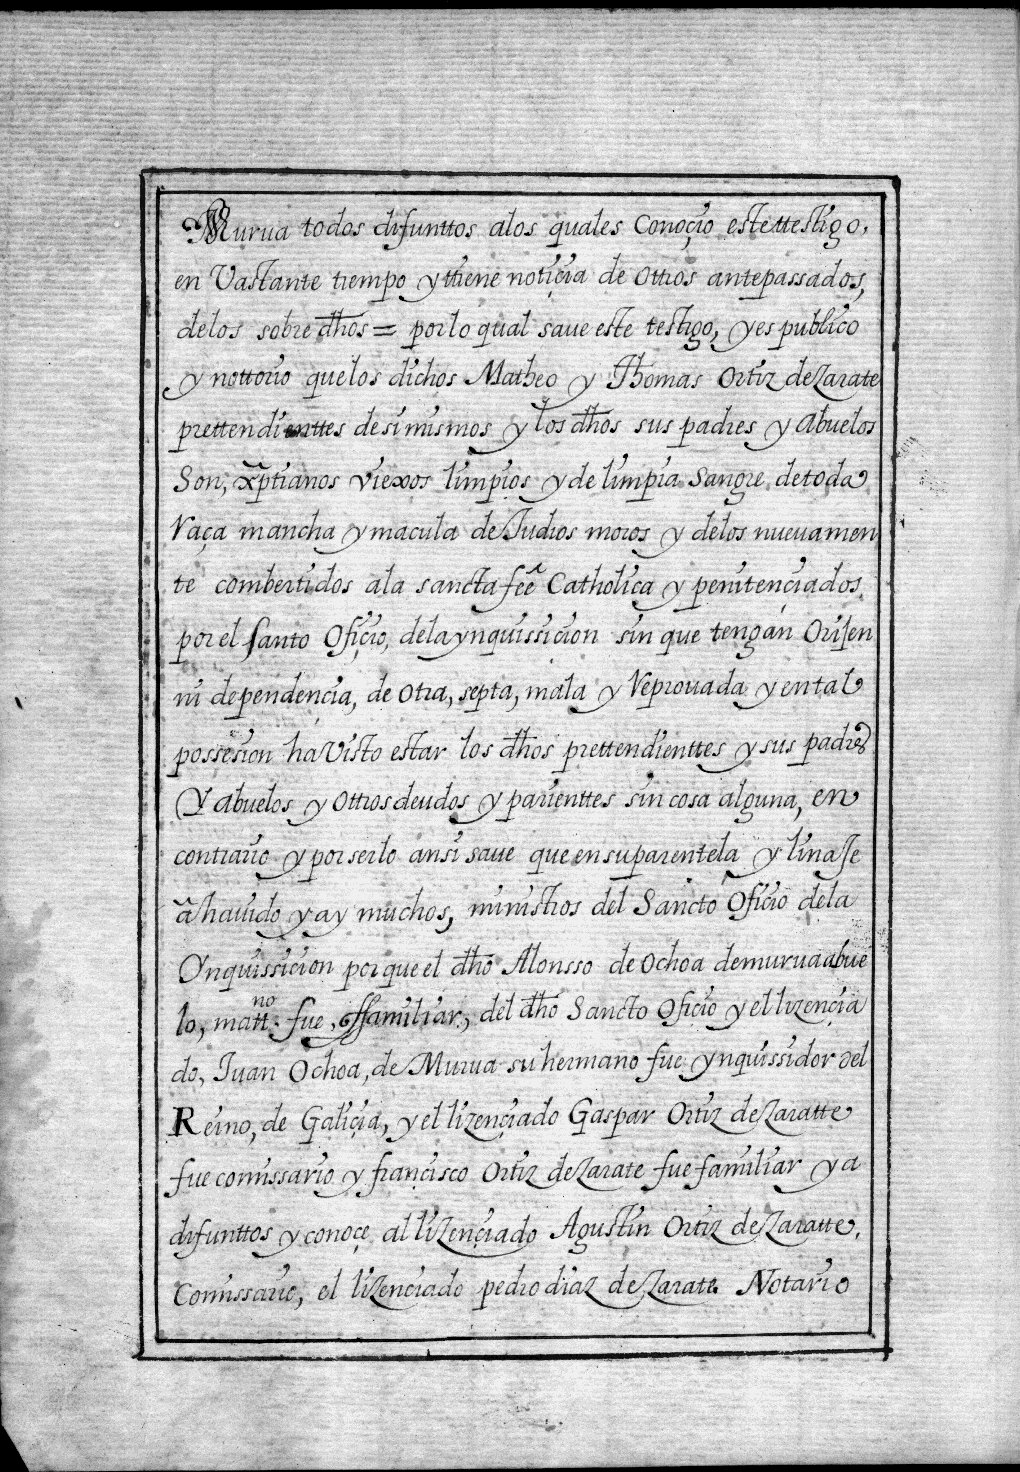 Murua todos difunttos alos quales Conoçio estettestigo,
en Vastante tiempo y ttiene notiçia de ottros antepassados,
delos sobre dhos = por lo qual saue este testigo, y es publico
y nottorio que los dichos Matheo y Thomas Ortiz de Zarate
prettendienttes de si mismos y los dhos sus padres y Abuelos
Son, xptianos viexos limpios y de limpia sangre de toda
Raça mancha y macula de Judios moros y delos nueuamen
te combertidos ala sancta feê Catholica y penitençiados
por el santo Ofiçio, dela ynquissicion sin que tengan Orijen
ni dependençia, de otra, septa, mala y Reprouada y en tal
possesion ha Visto estar los dhos prettendienttes y sus padres
Y abuelos y ottros deudos y parienttes sin cosa alguna, en
contrario y por serlo ansi saue que en su parentela y linaje
â hauido y ay muchos, ministros del Sancto Oficio dela
Ynquissicion por que el dho Alonsso de Ochoa de murua abue
lo, matt.no fue, ffamiliar, del dho Sancto Oficio y el lizençia
do, Juan Ochoa, de Murua su hermano fue ynquissidor del
Reino, de Galiçia, y el lizençiado Gaspar Ortiz de Zaratte
fue comissario y françisco Ortiz de Zarate fue familiar y a
difunttos y conoçe al lizençiado Agustin Ortiz de Zaratte,
Comissario, el lizenciado pedro diaz de Zarate Notario